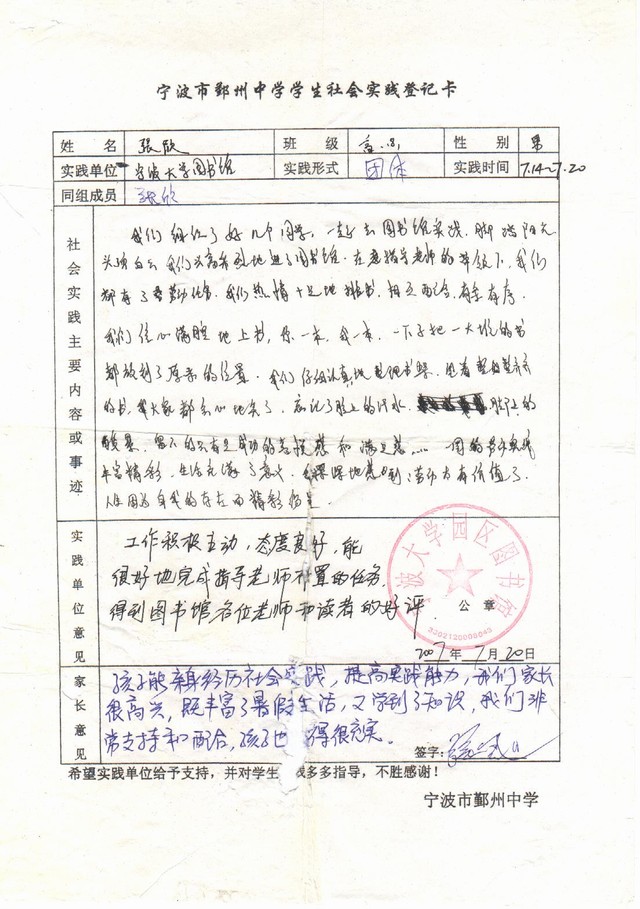 宁波市鄞州中学学生社会实践登记卡
姓 名 張欣 班 级 高 性 别 男
实践单位 宁波大学园图书馆 实践形式 团体 实践时间 7.14~7.20
同组成员
社会实践主要内容或事迹
我们组织了好几个同学，一起去图书馆实践，脚踏阳光
头顶白云我们兴高彩烈地进了图书馆．在老指导老师的带领下，我们
都有了劳动任务．我们热情十足地排书，相互配合，有条有序．
我们信心满腔地上书，你一本，我一本，一下子把一大堆的书
都放到了原来的位置．我们仔细认真地整理书架，看着整整齐齐
的书，大家都会心地笑了，忘记了脸上的汗水，
留下的只有是成功的喜悦感和满足感……一周的
丰富精彩，生活充满了意义．我深深地感到：劳动方有价值了．
人生因为自我的存在而精彩
实践单位意见
工作积极主动，态度良好，能
很好地完成指导老师布置的任务，
得到图书馆各位老师和读者的好评．
公 章
波大学园区图书馆
3302120006043
2007年7月20日
家长意见
孩子能亲身经历社会实践，提高实践能力，我们家长
很高兴，既丰富了暑假生活，又学到了知识，我们非
常支持和配合，孩子也 得很充实．
签字：
希望实践单位给予支持，并对学生 践多多指导，不胜感谢！
宁波市鄞州中学